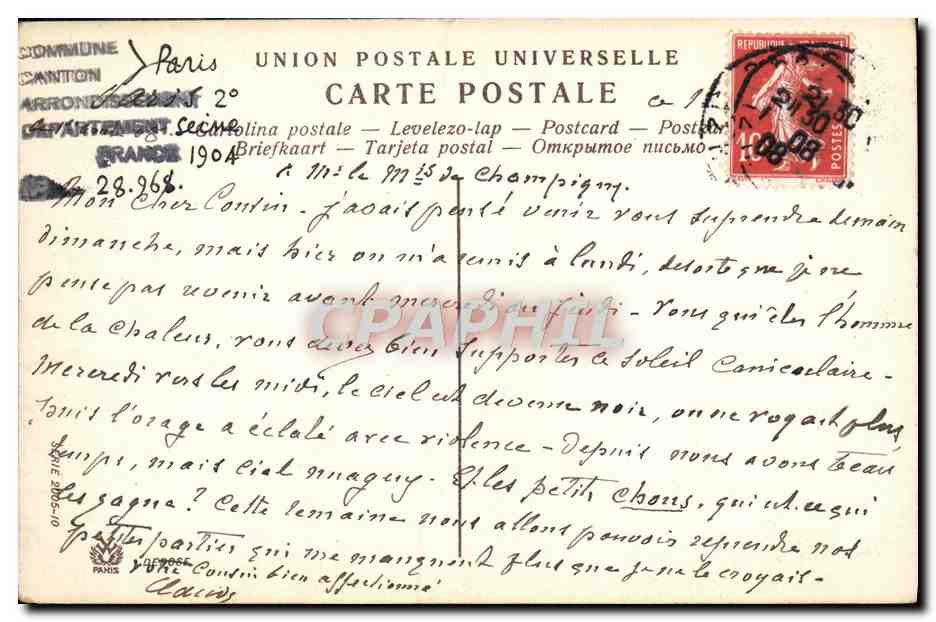 COMMUNE
CANTON
ARRONDISSEMENT
DEPARTEMENT
FRANCE
Paris
Paris 2°
Seine
1904
28.968.
UNION POSTALE UNIVERSELLE
CARTE POSTALE
Cartolina postale — Levelezo-lap — Postcard — Postkar
Briefkaart — Tarjeta postal — Открытое письмо
REPUBLIQUE FRANCAISE
10
POSTES
21 30
08
ce 1
à Mr le Mis de Champigny.
Mon Cher Cousin - j'avais pensé venir vous suprendre demain
dimanche, mais hier on m'a remis à lundi, de sorte que je ne
pense pas revenir avant mercredi ou jeudi - Vous qui êtes l'homme
de la chaleur, vous devez bien supporter ce soleil caniculaire -
Mercredi vers les midi, le ciel est devenu noir, on ne voyait plus
puis l'orage a éclaté avec violence - Depuis nous avons beau
temps, mais ciel nuageux. Et les petits chous, qui est-ce qui
les gagne? Cette semaine nous allons pouvoir reprendre nos
petites parties qui me manquent plus que je ne le croyais -
votre Cousin bien affectionné
SERIE 2005-10
PARIS
DEPOSE
CPAPHIL